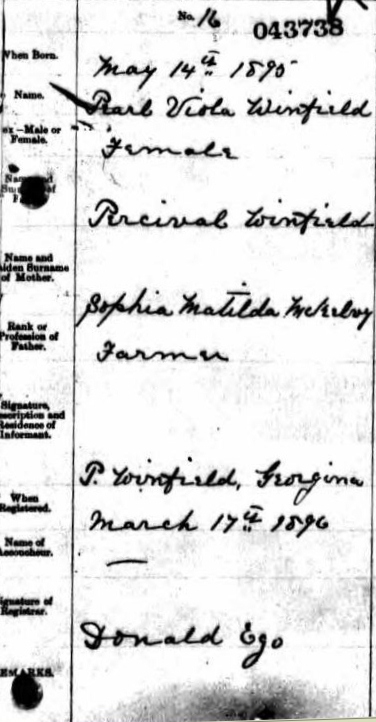 No. 16
043738
When Born.
May 14th 1895
Name.
Pearl Viola Winfield
Sex—Male or
Female.
Female
Percival Winfield
Name and
Maiden Surname
of Mother.
Sophia Matilda McKelvy
Rank or
Profession of
Father.
Farmer
Signature,
Description and
Residence of
Informant.
P. Winfield, Georgina
When
Registered.
March 17th 1896
Name of
Accoucheur.
—
Signature of
Registrar.
Donald Ego
REMARKS.